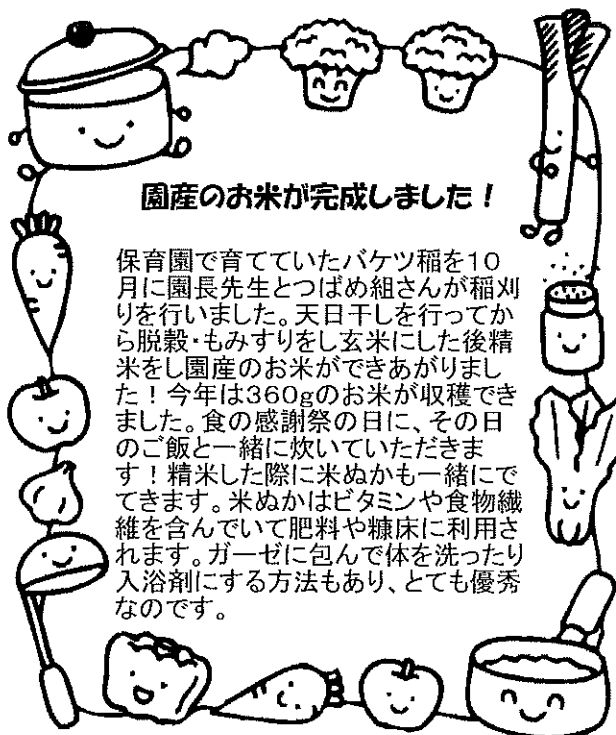 園産のお米が完成しました!
保育園で育てていたバケツ稲を10
月に園長先生とつばめ組さんが稲刈
りを行いました。天日干しを行ってか
ら脱穀・もみすりをし玄米にした後精
米をし園産のお米ができあがりまし
た!今年は360gのお米が収穫でき
ました。食の感謝祭の日に、その日
のご飯と一緒に炊いていただきま
す!精米した際に米ぬかも一緒にで
てきます。米ぬかはビタミンや食物繊
維を含んでいて肥料や糠床に利用さ
れます。ガーゼに包んで体を洗ったり
入浴剤にする方法もあり、とても優秀
なのです。